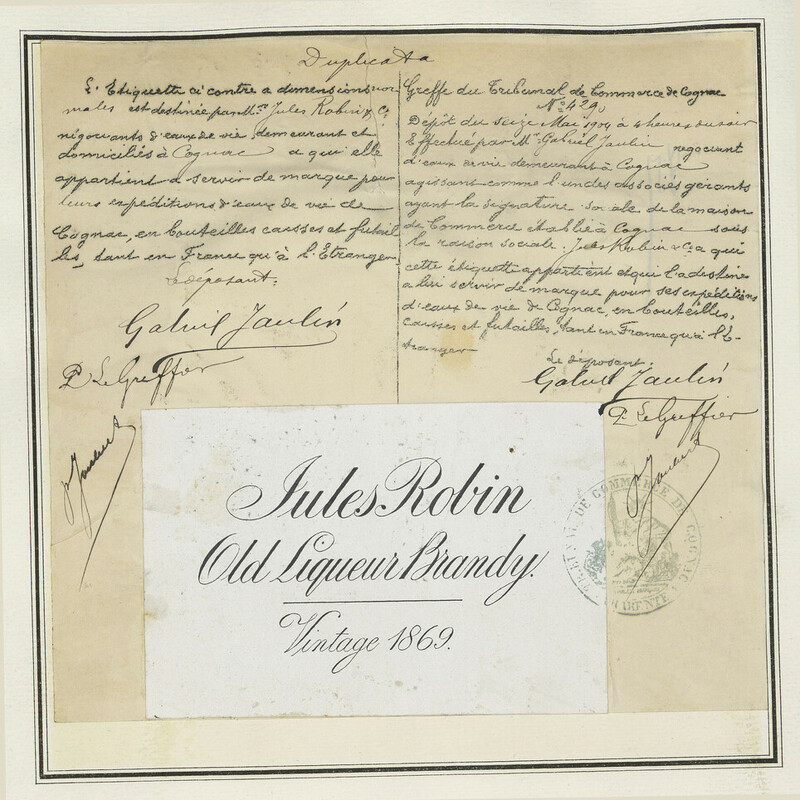 Duplicata
L'Etiquette ci contre a dimensions nor
males est destinée par Mrs Jules Robin & Cie
négociants d'eaux de vie, demeurant et
domiciliés à Cognac a qui elle
appartient a servir de marque pour
leurs expéditions d'eaux de vie de
Cognac, en bouteilles caisses et futail
les, tant en France qu'à l'Etranger
Le déposant:
Gabriel Jaulin
P. Le Greffier
Greffe du Tribunal de Commerce de Cognac
No 429.
Dépôt du seize Mai 1904 à 4 heures du soir
Effectué par Mr. Gabriel Jaulin négociant
d'eaux de vie demeurant à Cognac
agissant comme l'un des associés gérants
ayant la signature sociale de la maison
de Commerce établie à Cognac sous
la raison sociale. Jules Robin & Cie a qui
cette étiquette appartient et qui l'a destine
a lui servir de marque pour ses expéditions
d'eaux de vie de Cognac, en bouteilles,
caisses et futailles, tant en France qu'à l'E-
tranger
Le déposant.
Gabriel Jaulin
P. Le Greffier
Jules Robin
Old Liqueur Brandy.
Vintage 1869.
TRIBUNAL DE COMMERCE DE COGNAC
CHARENTE